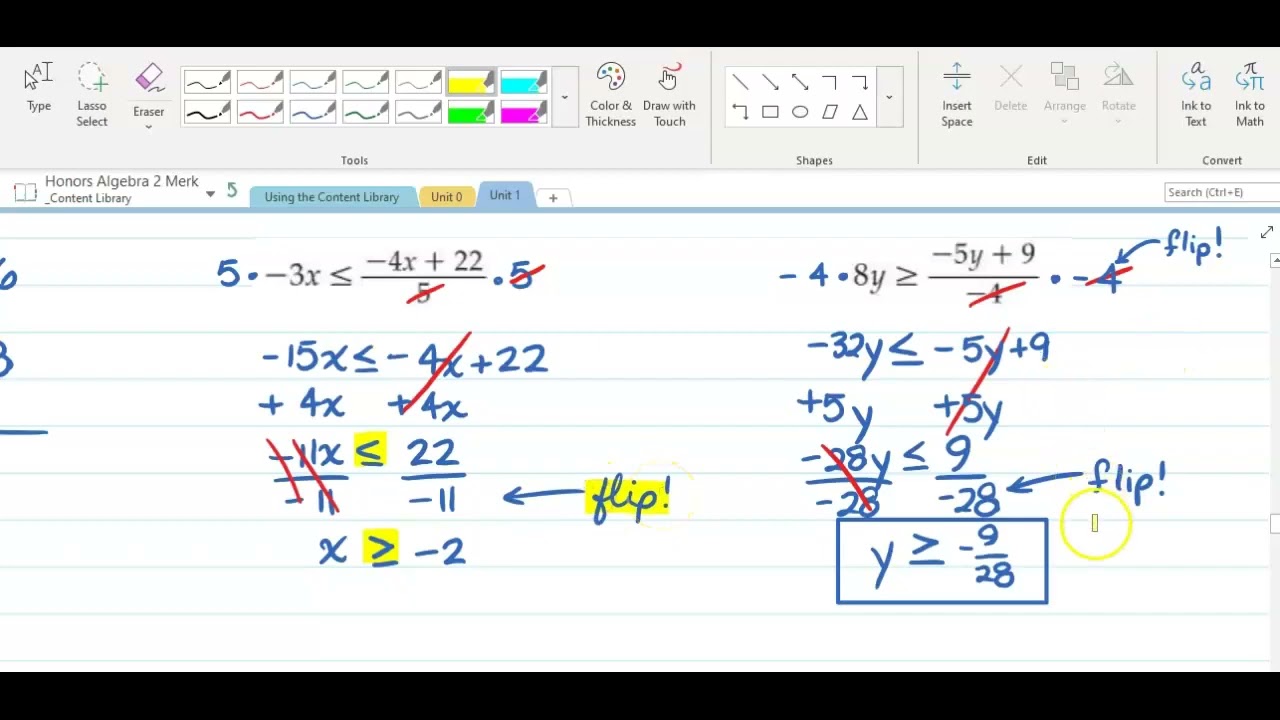 Type
Lasso Select
Eraser
Color & Thickness
Draw with Touch
Insert Space
Delete
Arrange
Rotate
Ink to Text
Ink to Math
Tools
Shapes
Edit
Convert
Honors Algebra 2 Merk
_Content Library
Using the Content Library
Unit 0
Unit 1
+
Search (Ctrl+E)
5 · -3x ≤ (-4x + 22)/5 · 5
-15x ≤ -4x + 22
+ 4x + 4x
-11x ≤ 22
-11 -11
flip!
x ≥ -2
-4 · 8y ≥ (-5y + 9)/-4 · -4
flip!
-32y ≤ -5y + 9
+5y +5y
-28y ≤ 9
-28 -28
flip!
y ≥ -9/28